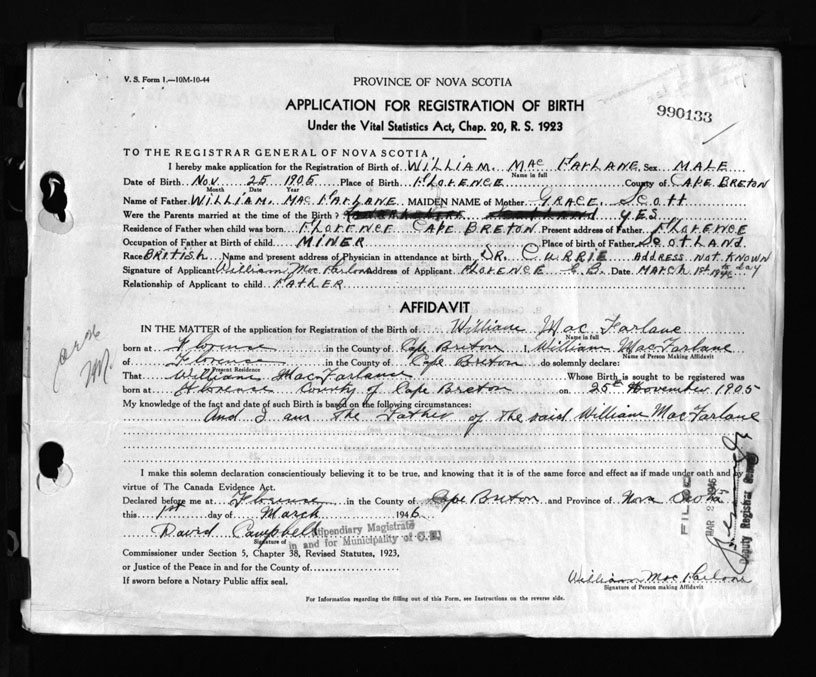 V. S. Form 1.—10M-10-44
PROVINCE OF NOVA SCOTIA
APPLICATION FOR REGISTRATION OF BIRTH
990133
Under the Vital Statistics Act, Chap. 20, R. S. 1923
TO THE REGISTRAR GENERAL OF NOVA SCOTIA
I hereby make application for the Registration of Birth of WILLIAM. MAC FARLANE. Sex MALE
Name in full
Date of Birth NOV 25 1905 Place of Birth FLORENCE County of CAPE BRETON
Month Date Year
Name of Father WILLIAM. MAC FARLANE. MAIDEN NAME of Mother GRACE. SCOTT
Were the Parents married at the time of the Birth? YES.
Residence of Father when child was born FLORENCE CAPE BRETON. Present address of Father FLORENCE
Occupation of Father at Birth of child MINER Place of birth of Father SCOTLAND.
Race BRITISH Name and present address of Physician in attendance at birth DR. CURRIE ADDRESS NOT KNOWN
Signature of Applicant William Mac Farlane Address of Applicant FLORENCE C.B. Date MARCH 1st day
Relationship of Applicant to child FATHER
AFFIDAVIT
IN THE MATTER of the application for Registration of the Birth of William Mac Farlane
Name in full
born at Florence in the County of Cape Breton I, William MacFarlane
Name of Person Making Affidavit
of Florence in the County of Cape Breton do solemnly declare:
Present Residence
That William MacFarlane Whose Birth is sought to be registered was
born at Florence County of Cape Breton on 25th November 1905
My knowledge of the fact and date of such Birth is based on the following circumstances:
And I am the Father of the said William MacFarlane
I make this solemn declaration conscientiously believing it to be true, and knowing that it is of the same force and effect as if made under oath and by
virtue of The Canada Evidence Act.
Declared before me at Florence in the County of Cape Breton and Province of Nova Scotia
this 1st day of March 1946
David Campbell Stipendiary Magistrate
Signature of in and for Municipality of C. B.
Commissioner under Section 5, Chapter 38, Revised Statutes, 1923,
or Justice of the Peace in and for the County of
If sworn before a Notary Public affix seal.
William Mac Farlane
Signature of Person making Affidavit
For Information regarding the filling out of this Form, see Instructions on the reverse side.
FILED
MAR 2 1946
Deputy Registrar General